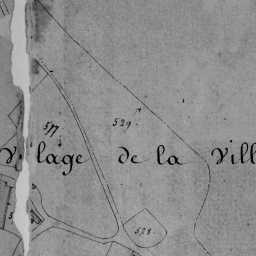 529.
577
V lage de la Vill
528.